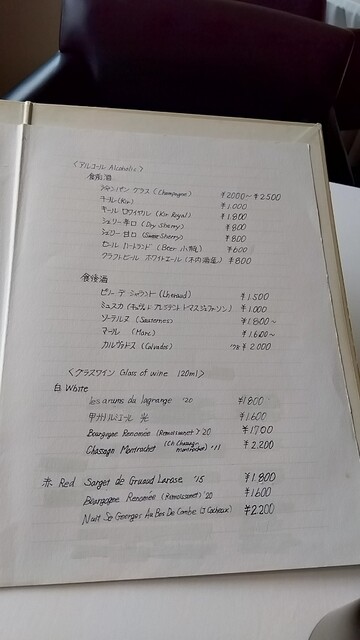 <アルコール Alcoholic>
食前酒
シャンパン グラス (Champagne) ¥2000~¥2500
キール (Kir) ¥1.000
キール ロワイヤル (Kir Royal) ¥1.800
シェリー 辛口 (Dry Sherry) ¥800
シェリー 甘口 (Sweet Sherry) ¥800
ビール ハートランド (Beer 小瓶) ¥600
クラフトビール ホワイトエール ¥800
食後酒
ピノー デ シャラント ¥1.500
ミュスカ ¥1.000
ソーテルヌ (Sauternes) ¥1.800~
マール (Marc) ¥1.600~
カルヴァドス (Calvados) ¥2.000
<グラスワイン Glass of wine 120ml>
白 White
les arums du lagrange '20 ¥1800
甲州 光 ¥1.600
Bourgogne Renomée (Remoissenet) '20 ¥1700
Chasagn Montrachet '11 ¥2.200
赤 Red Sarget de Gruaud Larose '15 ¥1.800
Bourgogne Renomée (Remoissenet) '20 ¥1.600
Nuit Se Georges Au Bas De Combe (J Cacheux) ¥2200